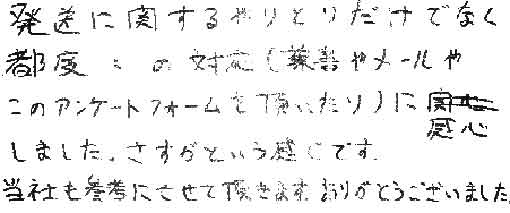 発送に関するやりとりだけでなく
都度々の対応(葉書やメールや
このアンケートフォームを頂いたり)に感心
しました。さすがという感じです。
当社も参考にさせて頂きます。ありがとうございました。